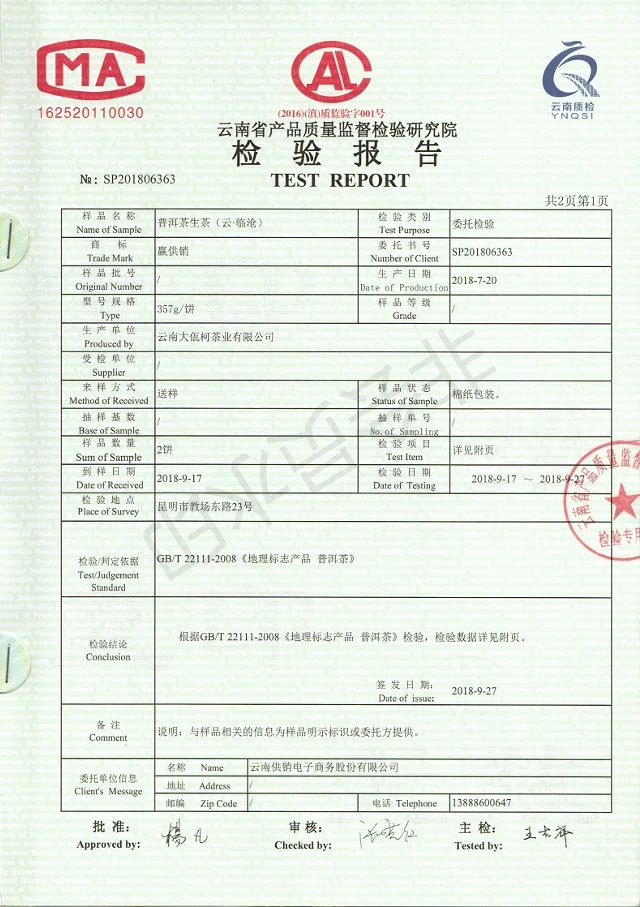 MA
162520110030
CAL
(2016)(滇)质监验字001号
云南质检
YNQSI
云南省产品质量监督检验研究院
检验报告
№: SP201806363
TEST REPORT
共2页第1页
样品名称 普洱茶生茶（云·临沧） 检验类别 委托检验
Name of Sample Test Purpose
商标 赢供销 委托书号 SP201806363
Trade Mark Number of Client
样品批号 / 生产日期 2018-7-20
Original Number Date of Production
型号规格 357g/饼 样品等级 /
Type Grade
生产单位 云南大佤柯茶业有限公司
Produced by
受检单位 /
Supplier
来样方式 送样 样品状态 棉纸包装。
Method of Received Status of Sample
抽样基数 / 抽样单号 /
Base of Sample No.of Sampling
样品数量 2饼 检验项目 详见附页
Sum of Sample Test Item
到样日期 2018-9-17 检验日期 2018-9-17 ～ 2018-9-27
Date of Received Date of Testing
检验地点 昆明市教场东路23号
Place of Survey
检验/判定依据 GB/T 22111-2008《地理标志产品 普洱茶》
Test/Judgement
Standard
检验结论 根据GB/T 22111-2008《地理标志产品 普洱茶》检验，检验数据详见附页。
Conclusion
签发日期: 2018-9-27
Date of issue:
备注 说明：与样品相关的信息为样品明示标识或委托方提供。
Comment
委托单位信息
Client's Message
名称 Name 云南供销电子商务股份有限公司
地址 Address /
邮编 Zip Code / 电话 Telephone 13888600647
批准: 杨凡 审核: 主检:
Approved by: Checked by: Tested by:
云南省产品质量监督
检验专用